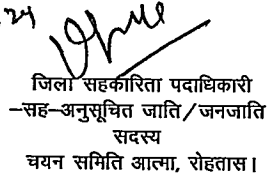 .24
जिला सहकारिता पदाधिकारी
–सह–अनुसूचित जाति/जनजाति
सदस्य
चयन समिति आत्मा, रोहतास।